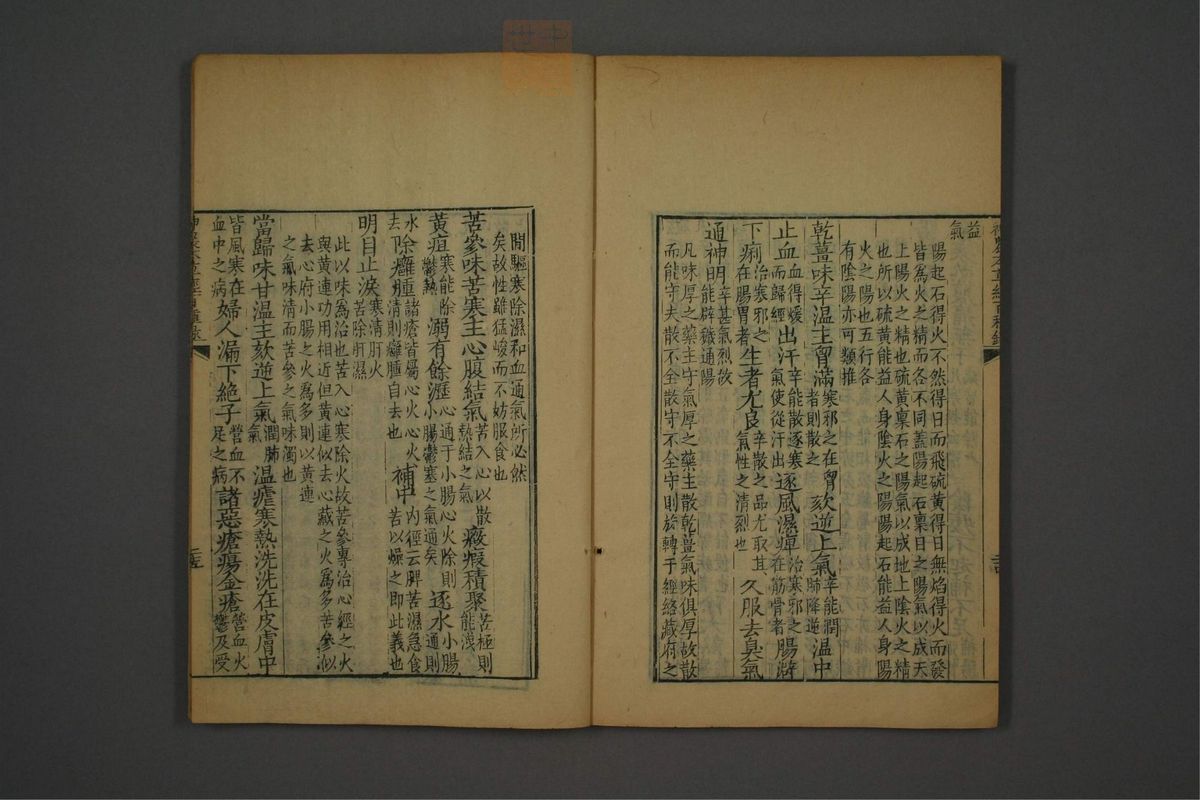 益
氣
陽起石得火不然得日而飛硫黄得日無焰得火而發
皆爲火之精而各不同蓋陽起石禀日之陽氣以成天
上陽火之精也硫黄禀石之陽氣以成地上陰火之精
也所以硫黄能益人身陰火之陽陽起石能益人身陽
火之陽也五行各
有陰陽亦可類推
乾薑味辛温主胷滿寒邪之在胷者則散之欬逆上氣辛能潤肺降逆温中
止血血得煖而歸經出汗辛能散逐寒氣使從汗出逐風濕痺治寒邪之在筋骨者腸澼
下痢治寒邪之在腸胃者生者尤良辛散之品尤取其氣性之清烈也久服去臭氣
通神明辛甚氣烈故能辟穢通陽
凡味厚之藥主守氣厚之藥主散乾薑氣味俱厚故散
而能守夫散不全散守不全守則旋轉于經絡藏府之
間驅寒除濕和血通氣所必然
矣故性雖猛峻而不妨服食也
苦參味苦寒主心腹結氣苦入心以散熱結之氣癥瘕積聚苦極則能洩
黄疸寒能除鬱熱溺有餘瀝心通于小腸心火除則小腸鬱塞之氣通矣逐水小腸通則
水去除癰腫諸瘡皆屬心火心火清則癰腫自去也補中内徑云脾苦濕急食苦以燥之即此義也
明目止淚寒清肝火苦除肝濕
此以味爲治也苦入心寒除火故苦參專治心經之火
與黄連功用相近但黄連似去心藏之火爲多苦參似
去心府小腸之火爲多則以黄連
之氣味清而苦參之氣味濁也
當歸味甘温主欬逆上氣潤肺氣温瘧寒熱洗洗在皮膚中
皆風寒在血中之病婦人漏下絶子營血不足之病諸惡瘡瘍金瘡營血火鬱及受
二五